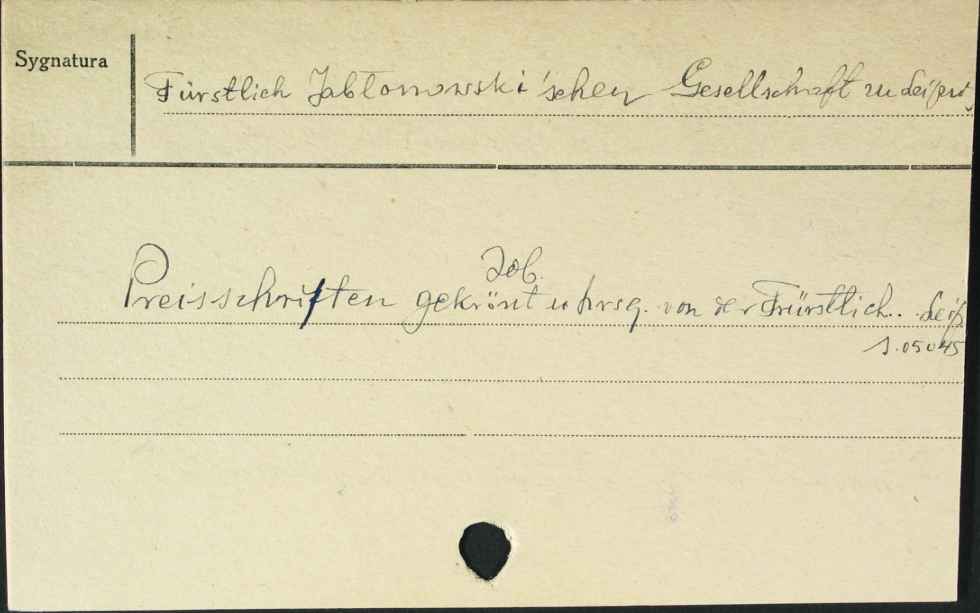 Sygnatura
Fürstlich Jabłonowski'schen Gesellschaft zu
Job.
Preisschriften gekrönt u hrsg. von der Fürstlich.. Leip